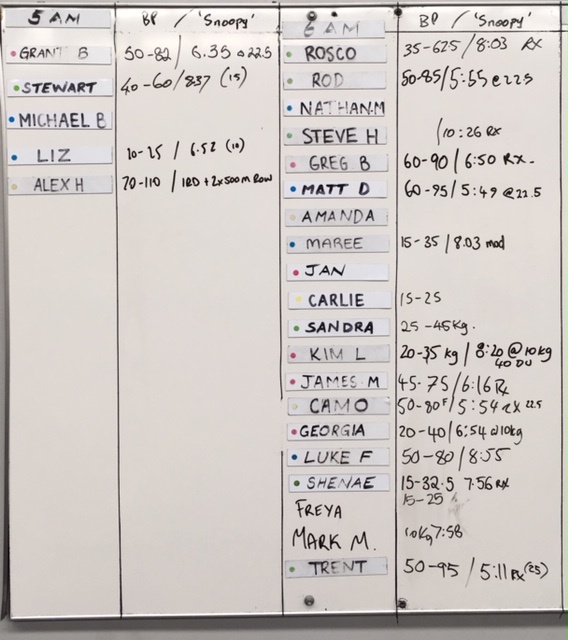 5 AM BP / 'Snoopy'
GRANT B 50-82 / 6.35 @ 22.5
STEWART 40-60/8:37 (15)
MICHAEL B
LIZ 20-25 / 6.52 (10)
ALEX H 70-110 / 1RD + 2x500m Row
6 AM BP / 'Snoopy'
ROSCO 35-62.5 / 8:03 RX
ROD 50-85/5:55 @ 22.5
NATHAN.M
STEVE H /10:26 RX
GREG B 60-90 / 6:50 RX-
MATT D 60-95 / 5:49 @22.5
AMANDA
MAREE 15-35 / 8.03 mod
JAN
CARLIE 15-25
SANDRA 25 -45kg.
KIM L 20-35 kg / 8:20 @ 10kg
40 DU
JAMES M 45-75/6:16 Rx
CAMO 50-80F/5:54 RX 22.5
GEORGIA 20-40/6:54 @10kg
LUKE F 50-80 / 8:55
SHENAE 15-32.5 7:56 RX
FREYA 15-25
MARK M. 10kg 7:58
TRENT 50-95 / 5:11 Rx (25)